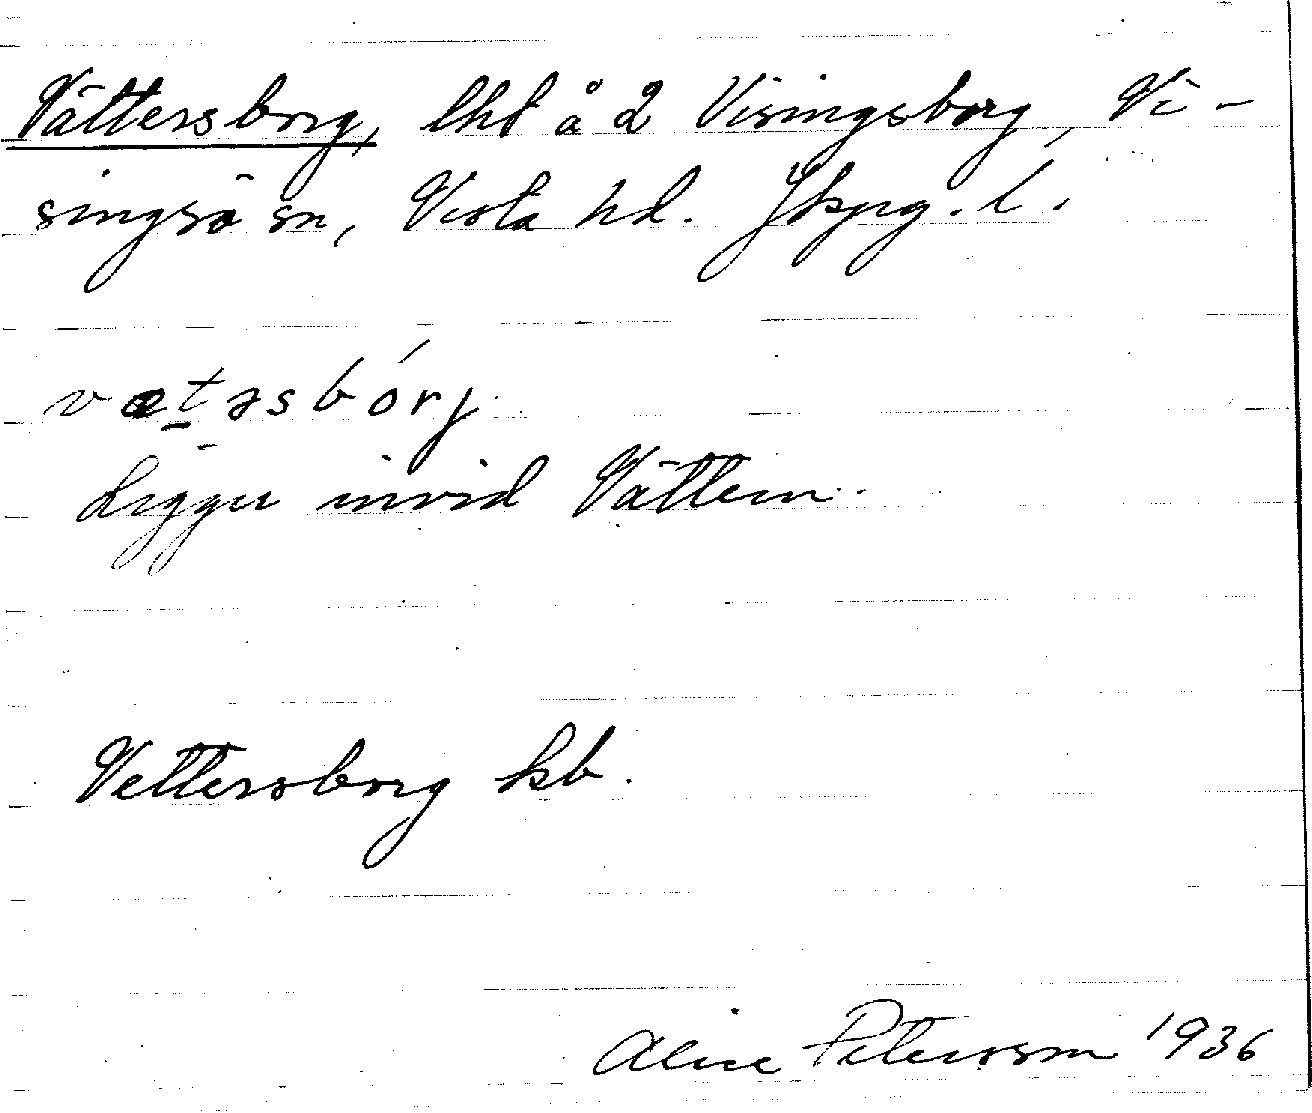 Vättersborg, lht å 2 Visingsborg, Vi-
singsö sn, Vista hd. Jkpg. l.
vætəsbórj
Ligger invid Vättern.
Vettersborg kb.
Alice Petersson 1936